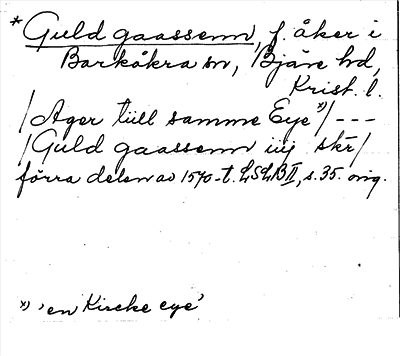 * Guld gaassenn, f. åker i
Barkåkra sn, Bjäre hd,
Krist. l.
/Ager till samme Eye x)/ ---
/Guld gaassenn iiij skr/
förra delen av 1570-t. LSLB II, s. 35. orig.
x) 'en Kircke eye'